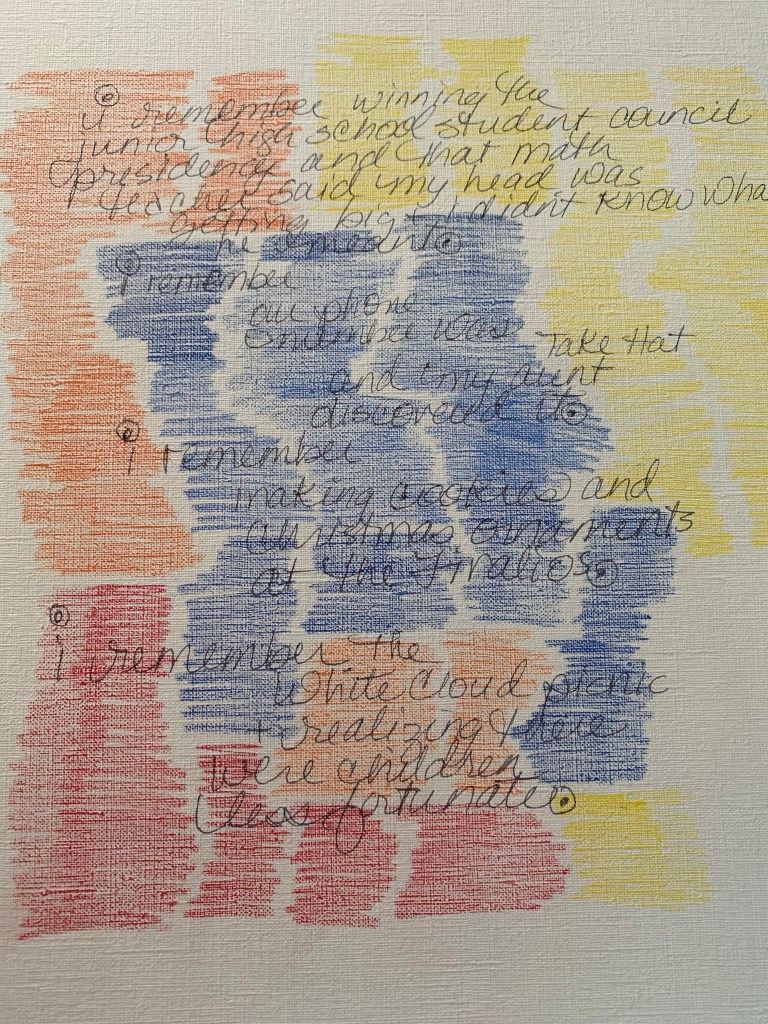 i remember winning the
junior high school student council
presidency and that math
teacher said my head was
getting big + i didnt know wha
he meant.
i remember
our phone
number was Take Hat
and my aunt
discovered it.
i remember
making cookies and
christmas ornaments
at the Firalios.
i remember the
White Cloud picnic
+ realizing there
were children
less fortunate.